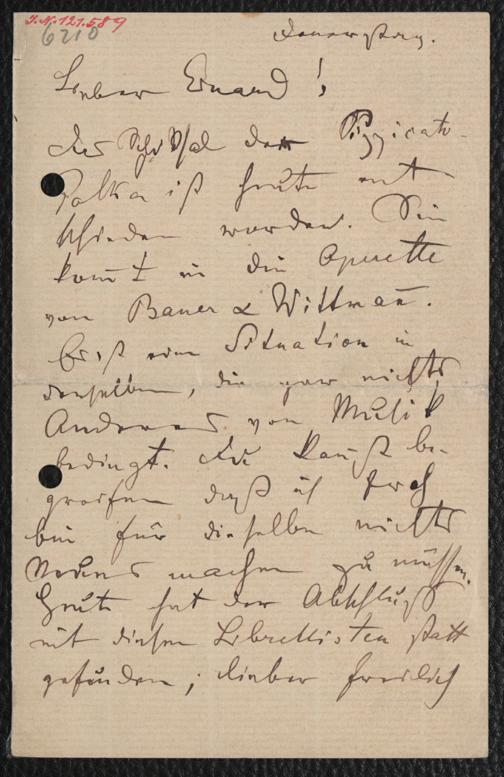 J.N. 121.589
6210
Donnerstag.
Lieber Eduard!
das Schiksal der Pizzicato-
Polka ist heute ent-
schieden worden. Sie
komt in die Operette
von Bauer & Wittman.
Es ist eine Situation in
derselben, die gar nichts
Anderes von Musik
bedingt. Du kanst be-
greifen daß ich froh
bin für dieselbe nichts
Neues machen zu müssen.
Heute hat der Abschluß
mit diesen Librettisten statt
gefunden; lieber freilich